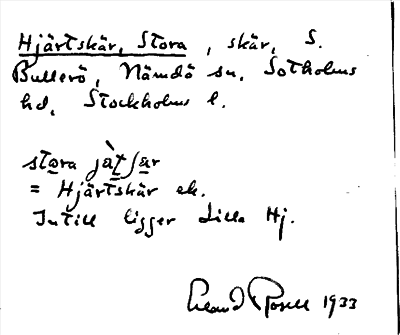 Hjärtskär, Stora, skär, S.
Bullerö, Nämdö sn, Sotholms
hd, Stockholms l.
stora jàʈʃär
= Hjärtskär ek.
Intill ligger Lilla Hj.
Erland Rosell 1933